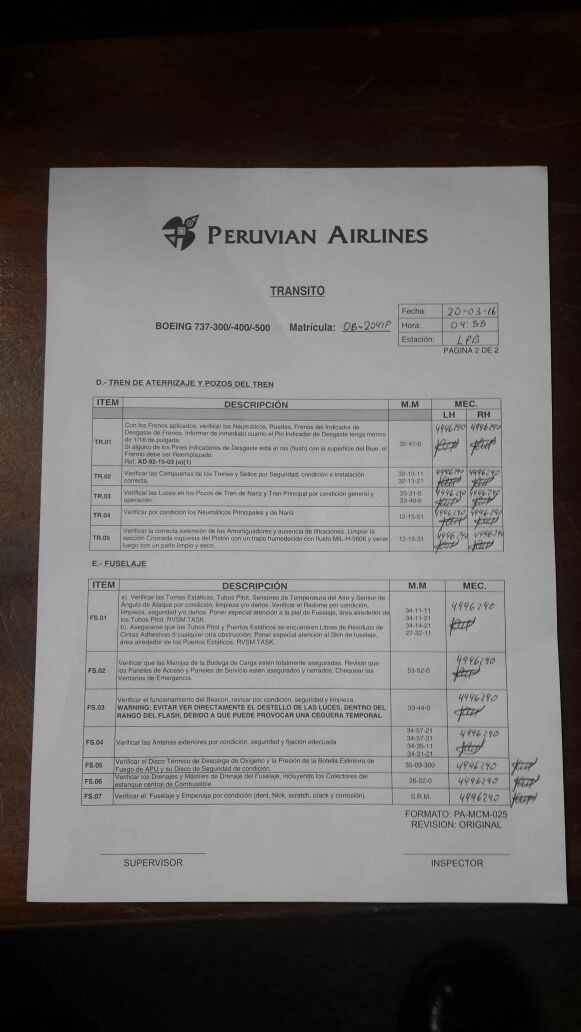 PERUVIAN AIRLINES
TRANSITO
BOEING 737-300/-400/-500 Matrícula: OB-2041P
Fecha: 20-03-16
Hora: 04:55
Estación: LPB
PAGINA 2 DE 2
D.- TREN DE ATERRIZAJE Y POZOS DEL TREN
ITEM DESCRIPCIÓN M.M MEC.
LH RH
TR.01 Con los Frenos aplicados, verificar los Neumáticos, Ruedas, Frenos del Indicador de
Desgaste de Frenos. Informar de inmediato cuando el Pin Indicador de Desgaste tenga menos
de 1/16 de pulgada.
Si alguno de los Pines indicadores de Desgaste está al ras (flush) con la superficie del Buje, el
Frenno debe ser Reemplazado.
Ref. AD 92-15-03 (a)(1)
32-41-0 4996290 4996290
TR.02 Verificar las Compuertas de los Trenes y Sellos por Seguridad, condición e instalación
correcta.
32-13-11
32-13-21
4996290 4996290
TR.03 Verificar las Luces en los Pozos de Tren de Nariz y Tren Principal por condición general y
operación.
33-31-0
33-40-0
4996290 4996290
TR.04 Verificar por condición los Neumáticos Principales y de Nariz 12-15-51 4996290 4996290
TR.05 Verificar la correcta extensión de los Amortiguadores y ausencia de filtraciones. Limpiar la
sección Cromada expuesta del Pistón con un trapo humedecido con fluido MIL-H-5606 y secar
luego con un paño limpio y seco.
12-15-31 4996290 4996290
E.- FUSELAJE
ITEM DESCRIPCIÓN M.M MEC.
FS.01 a). Verificar las Tomas Estáticas, Tubos Pitot, Sensores de Temperatura del Aire y Sensor de
Ángulo de Ataque por condición, limpieza y/o daños. Verificar el Rádome por condición,
limpieza, seguridad y/o daños. Poner especial atención a la piel de Fuselaje, área alrededor de
los Tubos Pitot. RVSM TASK.
b). Asegurarse que los Tubos Pitot y Puertos Estáticos se encuentren Libres de Residuos de
Cintas Adhesivas ó cualquier otra obstrucción. Poner especial atención al Skin de fuselaje,
área alrededor de los Puertos Estáticos. RVSM TASK.
34-11-11
34-11-21
34-14-21
27-32-11
4996290
FS.02 Verificar que las Manijas de la Bodega de Carga estén totalmente aseguradas. Revisar que
los Paneles de Acceso y Paneles de Servicio estén asegurados y cerrados. Chequear las
Ventanas de Emergencia.
53-52-0 4996290
FS.03 Verificar el funcionamiento del Beacon, revisar por condición, seguridad y limpieza.
WARNING: EVITAR VER DIRECTAMENTE EL DESTELLO DE LAS LUCES, DENTRO DEL
RANGO DEL FLASH, DEBIDO A QUE PUEDE PROVOCAR UNA CEGUERA TEMPORAL
33-44-0 4996290
FS.04 Verificar las Antenas exteriores por condición, seguridad y fijación adecuada.
34-57-21
34-57-31
34-35-11
34-31-21
4996290
FS.05 Verificar el Disco Térmico de Descarga de Oxígeno y la Presión de la Botella Extintora de
Fuego de APU y su Disco de Seguridad de condición.
35-09-300 4996290
FS.06 Verificar los Drenajes y Mástiles de Drenaje del Fuselaje, incluyendo los Colectores del
estanque central de Combustible
26-22-0 4996290
FS.07 Verificar el Fuselaje y Empenaje por condición (dent, Nick, scratch, crack y corrosión) S.R.M. 4996290
FORMATO: PA-MCM-025
REVISION: ORIGINAL
SUPERVISOR INSPECTOR